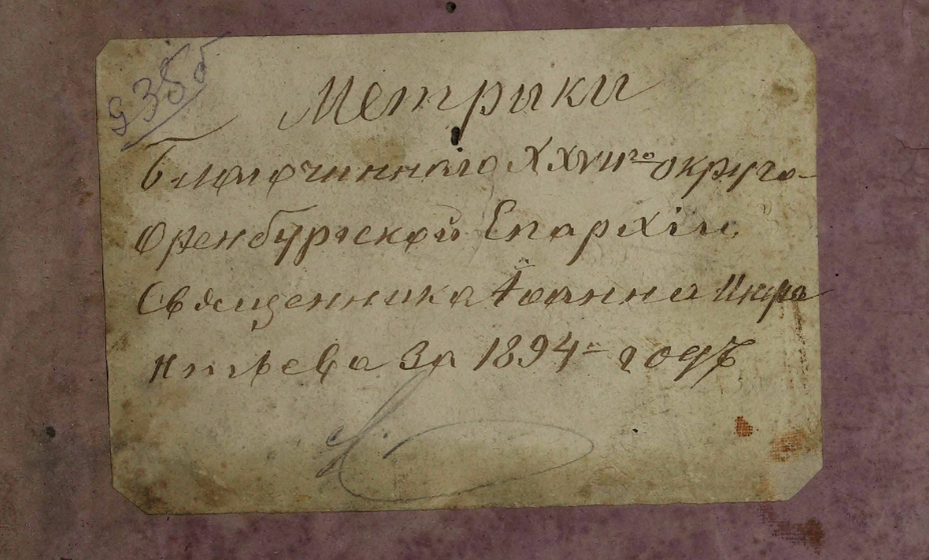 935б
Метрики
Благочиннаго XXVII го округа
Оренбургской Епархіи,
Священника Іоанна
за 1894 - годъ